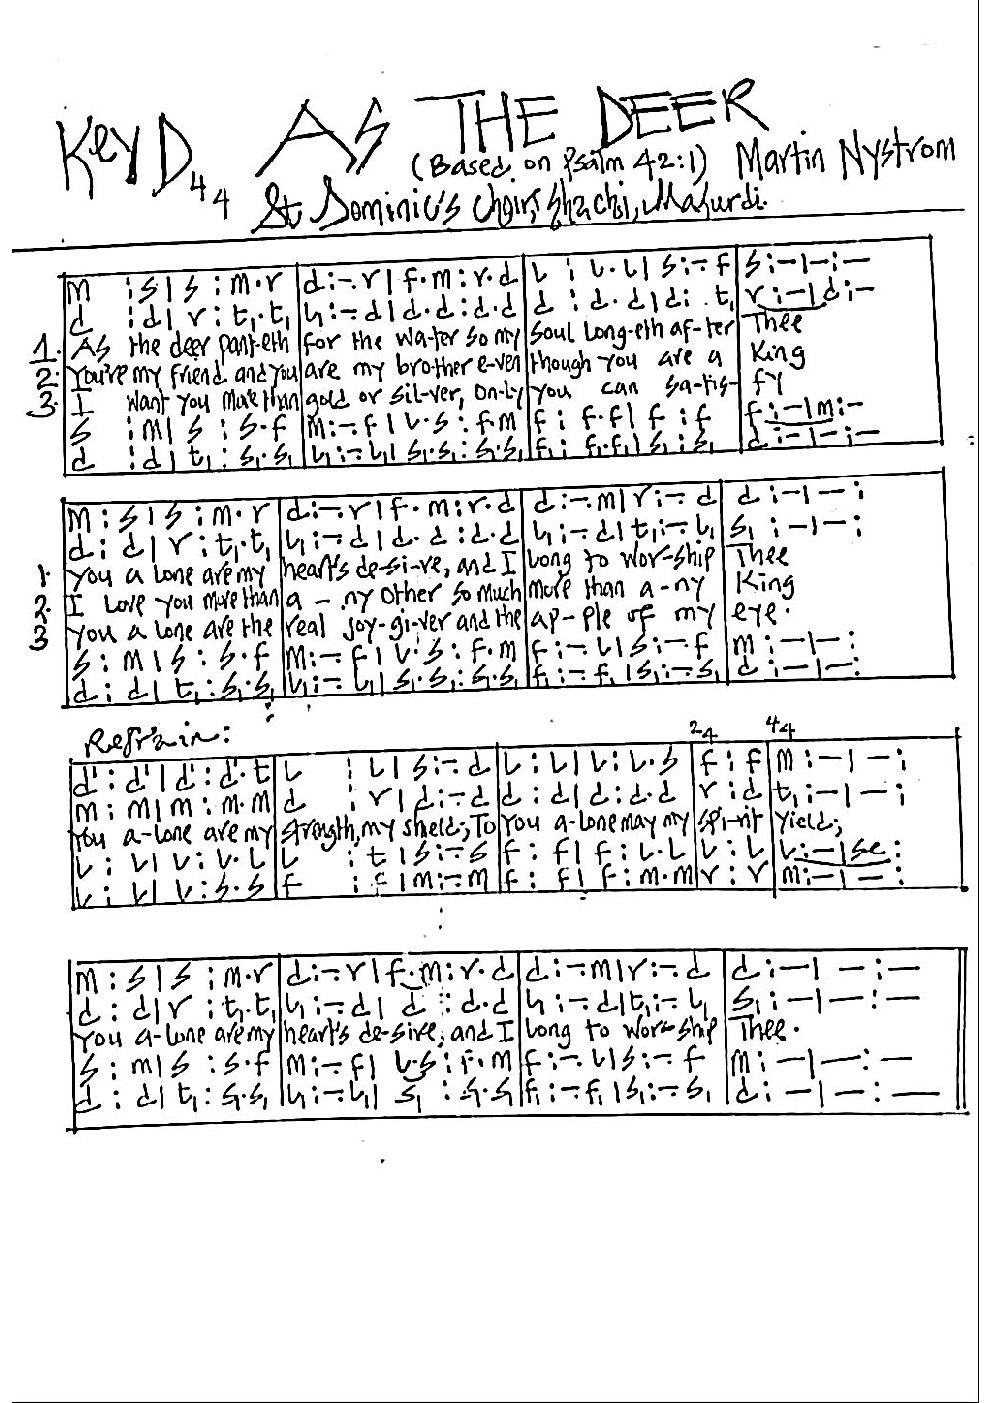 AS THE DEER
Key D 4 4
(Based on Psalm 42:1) Martin Nystrom
St Dominic's Choir, Shachi, Makurdi.
m :s|s :m.r|d:-.r|f.m:r.d|l :l.l|s:-.f|s:-|-:-
d :d|r:t₁.t₁|l₁:-.d|d.d:d.d|d :d.d|d:.t₁|r:-|d:-
1. As the deer pant-eth for the wa-ter so my soul long-eth af-ter Thee
2. You're my friend and you are my brother e-ven though you are a King
3. I want you more than gold or sil-ver, on-ly you can sa-tis- fy
s :m|s :s.f|m:-.f|l.s:f.m|f:f.f|f:f|f:-|m:-
d :d|t₁:s₁.s₁|l₁:-.l₁|s₁.s₁:s₁.s₁|f₁:f₁.f₁|s₁:s₁|d:-|-:-
m:s|s:m.r|d:-.r|f.m:r.d|d:-.m|r:-.d|d:-|-:
d:d|r:t₁.t₁|l₁:-.d|d.d:d.d|l₁:-.d|t₁:-.l₁|s₁:-|-:
1 You a lone are my heart's de-si-re, and I long to wor-ship Thee
2. I love you more than a - ny other so much more than a-ny King
3 You a lone are the real joy-gi-ver and the ap-ple of my eye.
s:m|s:s.f|m:-.f|l.s:f.m|f:-.l|s:-.f|m:-|-:
d:d|t₁:s₁.s₁|l₁:-.l₁|s₁.s₁:s₁.s₁|f₁:-.f₁|s₁:-.s₁|d:-|-:
Refrain:
2 4 4 4
d':d'|d':d'.t|l :l|s:-.d|l:l|l:l.s|f:f|m:-|-:
m:m|m:m.m|d :r|d:-.d|d:d|d:d.d|r:d|t₁:-|-:
You a-lone are my strength, my shield, To you a-lone may my spi-rit yield;
l:l|l:l.l|l :t|s:-.s|f:f|f:l.l|l:l|l:-|se:
l:l|l:s.s|f :f|m:-.m|f:f|f:m.m|r:r|m:-|-:
m:s|s:m.r|d:-.r|f.m:r.d|d:-.m|r:-.d|d:-|-:-
d:d|r:t₁.t₁|l₁:-.d|d:d.d|l₁:-.d|t₁:-.l₁|s₁:-|-:-
You a-lone are my heart's de-sire, and I long to wor-ship Thee.
s:m|s:s.f|m:-.f|l.s:f.m|f:-.l|s:-.f|m:-|-:-
d:d|t₁:s₁.s₁|l₁:-.l₁|s₁:s₁.s₁|f₁:-.f₁|s₁:-.s₁|d:-|-:-